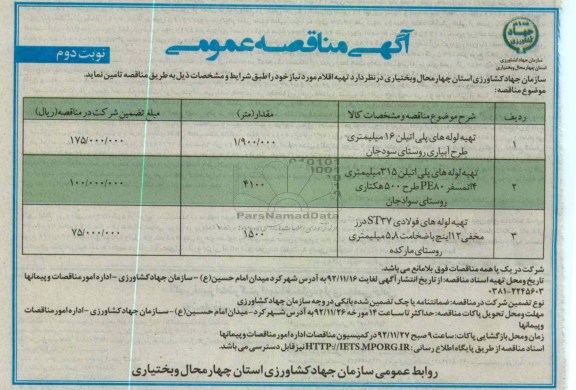 آگهی مناقصه عمومی
نوبت دوم
جهاد کشاورزی
سازمان جهاد کشاورزی
استان چهارمحال و بختیاری
سازمان جهاد کشاورزی استان چهارمحال وبختیاری در نظر دارد تهیه اقلام مورد نیاز خود را طبق شرایط و مشخصات ذیل به طریق مناقصه تامین نماید.
موضوع مناقصه:
ردیف شرح موضوع مناقصه و مشخصات کالا مقدار(متر) مبلغ تضمین شرکت در مناقصه(ریال)
۱ تهیه لوله های پلی اتیلن ۱۶ میلیمتری طرح آبیاری روستای سودجان ۱/۹۰۰/۰۰۰ ۱۷۵/۰۰۰/۰۰۰
۲ تهیه لوله های پلی اتیلن ۳۱۵میلیمتری ۴اتمسفر PE۸۰ طرح ۵۰۰ هکتاری روستای سوادجان ۴۱۰۰ ۱۰۰/۰۰۰/۰۰۰
۳ تهیه لوله های فولادی ST۳۷درز مخفی۱۲اینچ باضخامت ۵,۸ میلیمتری روستای مارکده ۱۵۰۰ ۷۵/۰۰۰/۰۰۰
ParsNamadData
شرکت در یک یا همه مناقصات فوق بلامانع می باشد.
تاریخ ومحل تهیه اسناد مناقصه: از تاریخ انتشار آگهی لغایت ۹۲/۱۱/۱۶ به آدرس شهرکرد میدان امام حسین(ع) –سازمان جهادکشاورزی –اداره امور مناقصات و پیمانها
۰۳۸۱-۲۲۴۵۶۰۳
نوع تضمین شرکت در مناقصه: ضمانتنامه یا چک تضمین شده بانکی در وجه سازمان جهادکشاورزی
مهلت ومحل تحویل پاکات مناقصه: حداکثر تا ساعت ۱۴ مورخه ۹۲/۱۱/۲۶ به آدرس شهرکرد – میدان امام حسین(ع) – سازمان جهادکشاورزی – اداره امور مناقصات
وپیمانها
زمان ومحل بازگشایی پاکات: ساعت ۹ صبح ۹۲/۱۱/۲۷ در کمیسیون مناقصات اداره امور مناقصات وپیمانها
اسناد مناقصه از طریق پایگاه اطلاع رسانی: HTTP://IETS.MPORG.IR نیز قابل دسترسی می باشد.
روابط عمومی سازمان جهادکشاورزی استان چهارمحال وبختیاری